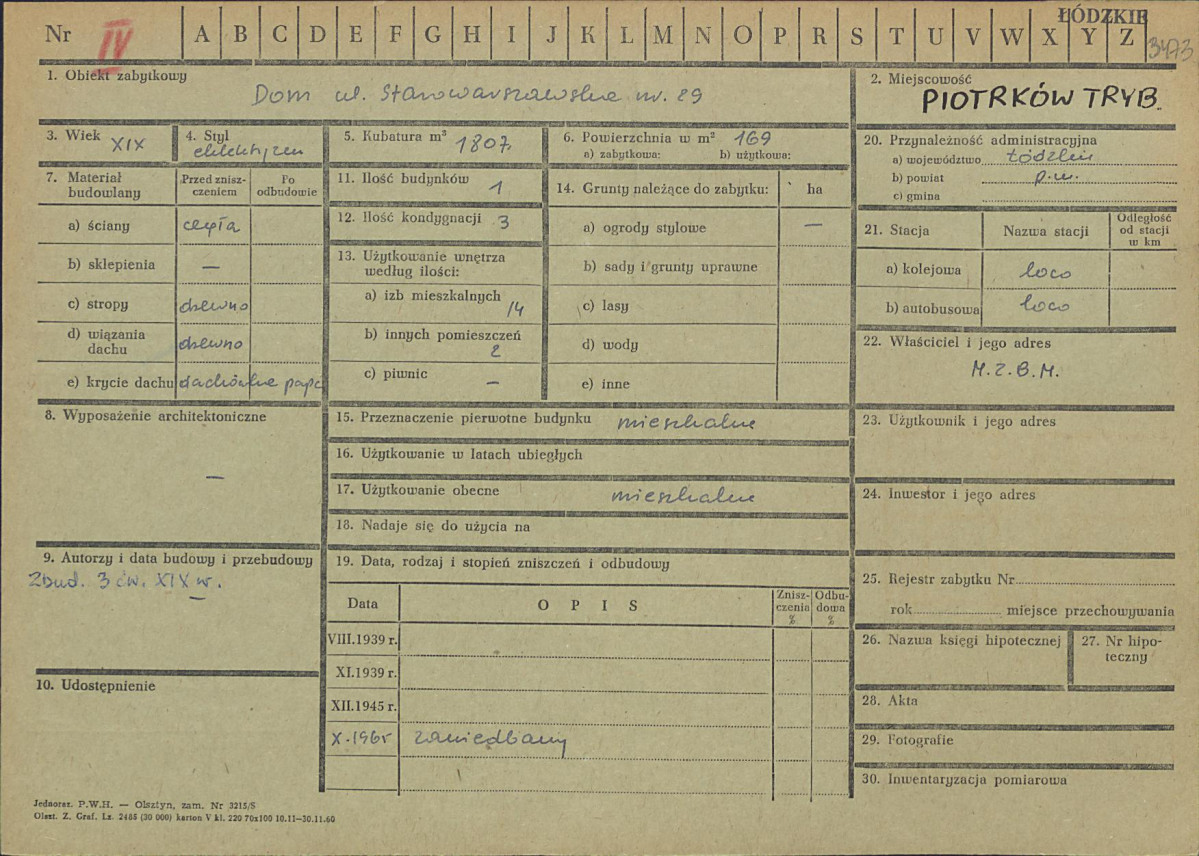 ŁÓDZKIE
Nr IV A B C D E F G H I J K L M N O P R S T U V W X Y Z 3473
1. Obiekt zabytkowy
Dom ul. Starowarszawska nr. 29
2. Miejscowość
PIOTRKÓW TRYB.
3. Wiek XIX
4. Styl
eklektyzm
5. Kubatura m³ 1807
6. Powierzchnia w m² 169
a) zabytkowa: b) użytkowa:
20. Przynależność administracyjna
a) województwo łódzkie
b) powiat p.m.
c) gmina
7. Materiał budowlany
Przed zniszczeniem
Po odbudowie
a) ściany cegła
b) sklepienia —
c) stropy drewno
d) wiązania dachu drewno
e) krycie dachu dachówka papa
11. Ilość budynków 1
12. Ilość kondygnacji 3
13. Użytkowanie wnętrza
według ilości:
a) izb mieszkalnych
14
b) innych pomieszczeń
2
c) piwnic —
14. Grunty należące do zabytku: ha
a) ogrody stylowe —
b) sady i grunty uprawne
c) lasy
d) wody
e) inne
21. Stacja
Nazwa stacji
Odległość
od stacji
w km
a) kolejowa loco
b) autobusowa loco
22. Właściciel i jego adres
M.Z.B.M.
8. Wyposażenie architektoniczne
—
15. Przeznaczenie pierwotne budynku mieszkalne
16. Użytkowanie w latach ubiegłych
17. Użytkowanie obecne mieszkalne
18. Nadaje się do użycia na
23. Użytkownik i jego adres
24. Inwestor i jego adres
9. Autorzy i data budowy i przebudowy
Zbud. 3 ćw. XIX w.
—
10. Udostępnienie
19. Data, rodzaj i stopień zniszczeń i odbudowy
Data
O P I S
Znisz-
czenia
%
Odbu-
dowa
%
VIII.1939 r.
XI.1939 r.
XII.1945 r.
X.1965 zaniedbany
25. Rejestr zabytku Nr
rok miejsce przechowywania
26. Nazwa księgi hipotecznej
27. Nr hipo-
teczny
28. Akta
29. Fotografie
30. Inwentaryzacja pomiarowa
Jednoraz. P.W.H. — Olsztyn, zam. Nr 3215/S
Olszt. Z. Graf. Lz. 2485 (30 000) karton V kl. 220 70x100 10.11—30.11.60